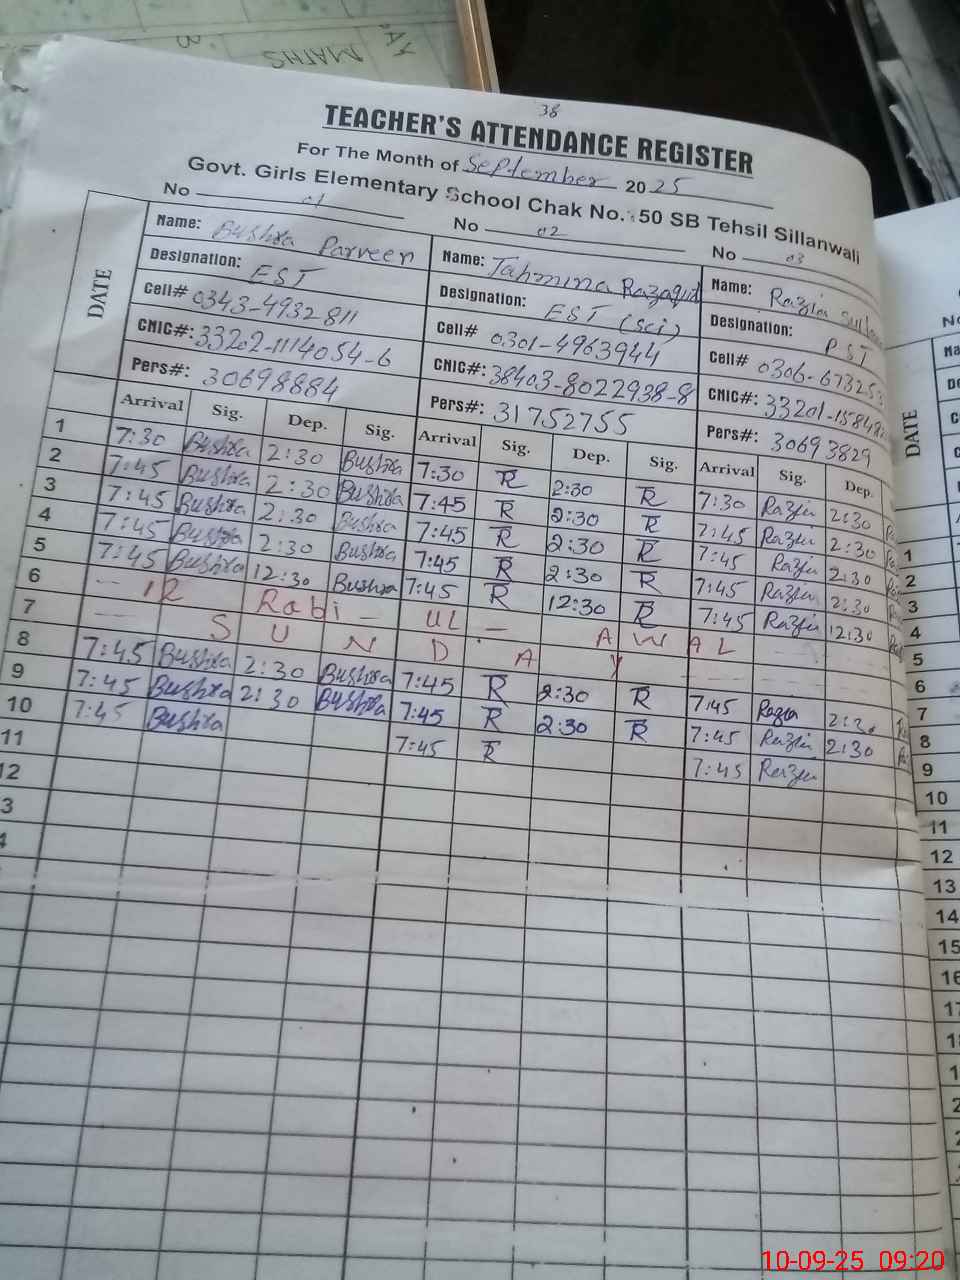 MATHS
38
TEACHER'S ATTENDANCE REGISTER
For The Month of September 2025
Govt. Girls Elementary School Chak No. 50 SB Tehsil Sillanwali
No 01 No 02 No 03
DATE
Name: Bushra Parveen Name: Tahmina Name: Razia
Designation: EST Designation: EST (Sci) Designation: PST
Cell# 0343-4932811 Cell# 0301-4963944 Cell# 0306-673253
CNIC#: 33202-1114054-6 CNIC#: 38403-8022938-8 CNIC#: 33201-158482
Pers#: 30698884 Pers#: 31752755 Pers#: 30693829
Arrival Sig. Dep. Sig. Arrival Sig. Dep. Sig. Arrival Sig. Dep.
1 7:30 Bushra 2:30 Bushra 7:30 TR 2:30 TR 7:30 Razia 2:30
2 7:45 Bushra 2:30 Bushra 7:45 TR 2:30 TR 7:45 Razia 2:30
3 7:45 Bushra 2:30 Bushra 7:45 TR 2:30 TR 7:45 Razia 2:30
4 7:45 Bushra 2:30 Bushra 7:45 TR 2:30 TR 7:45 Razia 2:30
5 7:45 Bushra 12:30 Bushra 7:45 TR 12:30 TR 7:45 Razia 12:30
6 12 Rabi - UL - AWAL
7 SUNDAY
8 7:45 Bushra 2:30 Bushra 7:45 TR 2:30 TR 7:45 Razia 2:30
9 7:45 Bushra 2:30 Bushra 7:45 TR 2:30 TR 7:45 Razia 2:30
10 7:45 Bushra 7:45 TR 7:45 Razia
11
12
3
4
DATE
1
2
3
4
5
6
7
8
9
10
11
12
13
14
15
16
10-09-25 09:20